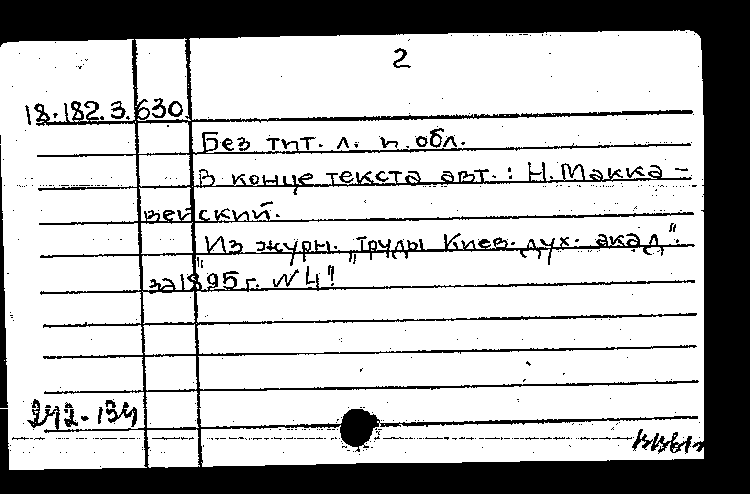 2
18.182.3.630
Без тит. л. и обл.
В конце текста авт.: Н. Макка-
вейский.
Из журн. „Труды Киев. дух. акад."
за 1895 г. N 4!
242-134